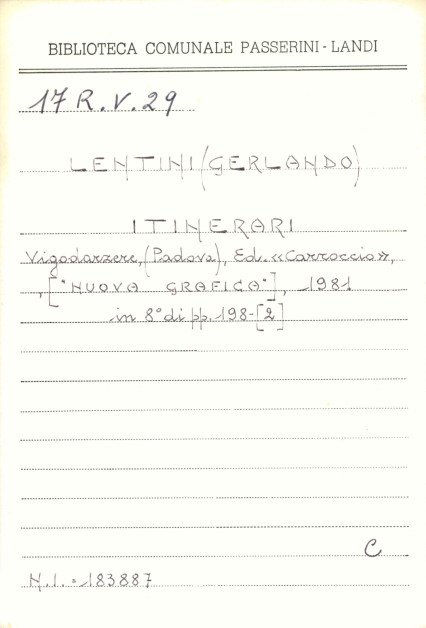 BIBLIOTECA COMUNALE PASSERINI-LANDI
17 R.V.29
LENTINI (GERLANDO)
ITINERARI
Vigodarzere, (Padova), Ed. «Carroccio»,
, ["NUOVA GRAFICA"], 1981
in 8° di pp. 198-[2]
C
N.I. = 183887